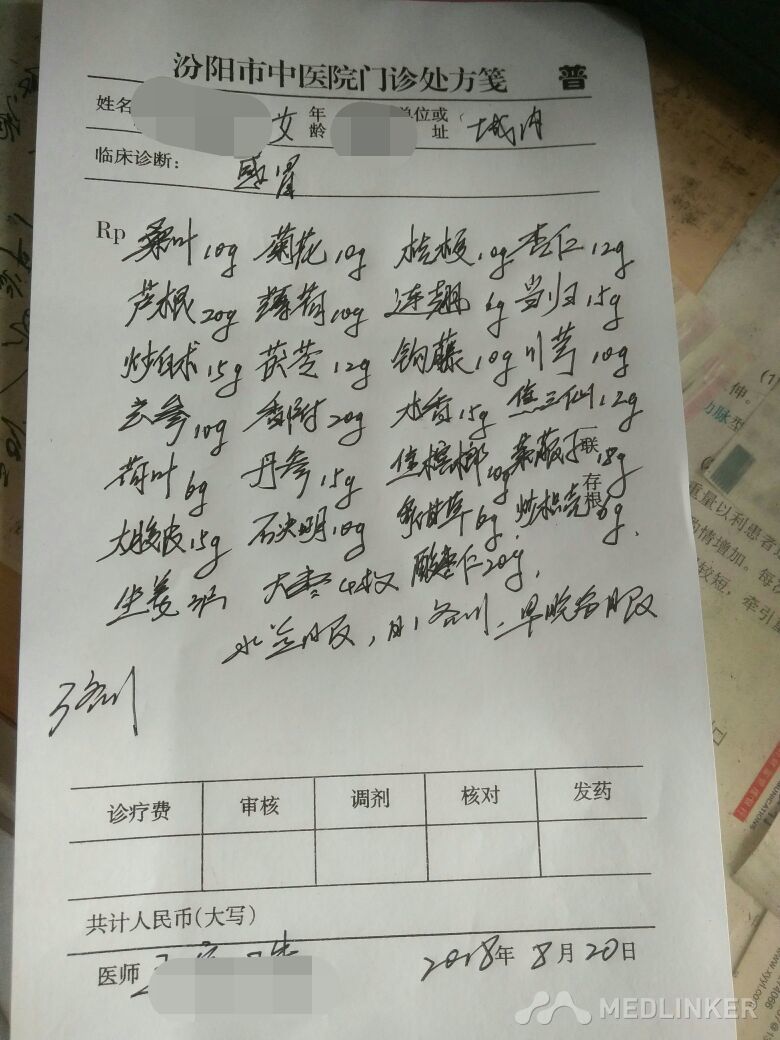 汾阳市中医院门诊处方笺 普
姓名 女 年龄 单位或 址 城内
临床诊断： 感冒
Rp 桑叶10g 菊花10g 桔梗10g 杏仁12g
芦根20g 薄荷10g 连翘6g 当归15g
炒白术15g 茯苓12g 钩藤10g 川芎10g
玄参10g 香附20g 木香15g 焦三仙12g
荷叶6g 丹参15g 焦槟榔10g 莱菔子18g
大腹皮15g 石决明10g 炙甘草6g 炒枳壳6g
联存根
生姜3片 大枣4枚 酸枣仁20g
水煎服，日1剂，早晚各服
3剂
诊疗费 审核 调剂 核对 发药
共计人民币(大写)
医师 2018年8月20日
MEDLINKER